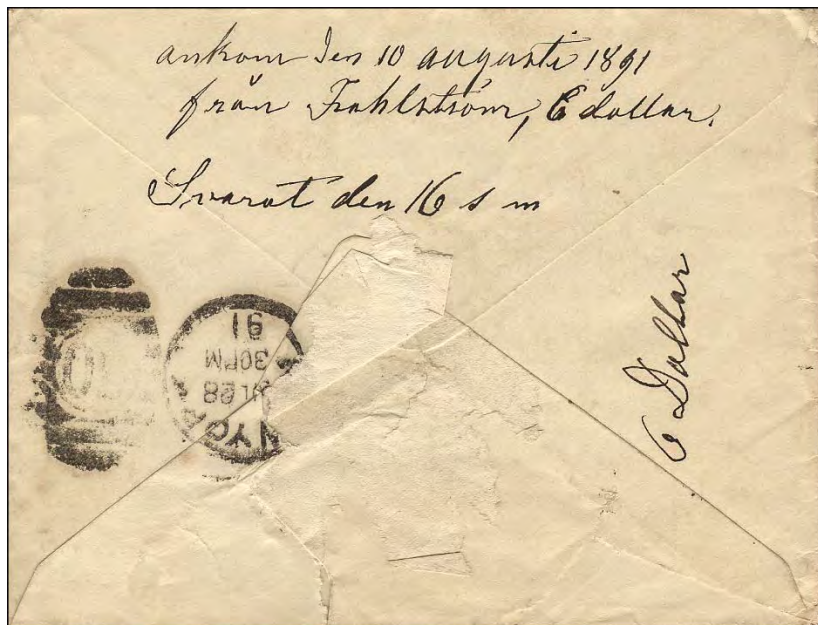 ankom den 10 augusti 1891
från Fahlström, 6 dollar.
Svarat den 16 s m
6 Dollar
91
30PM
JL28